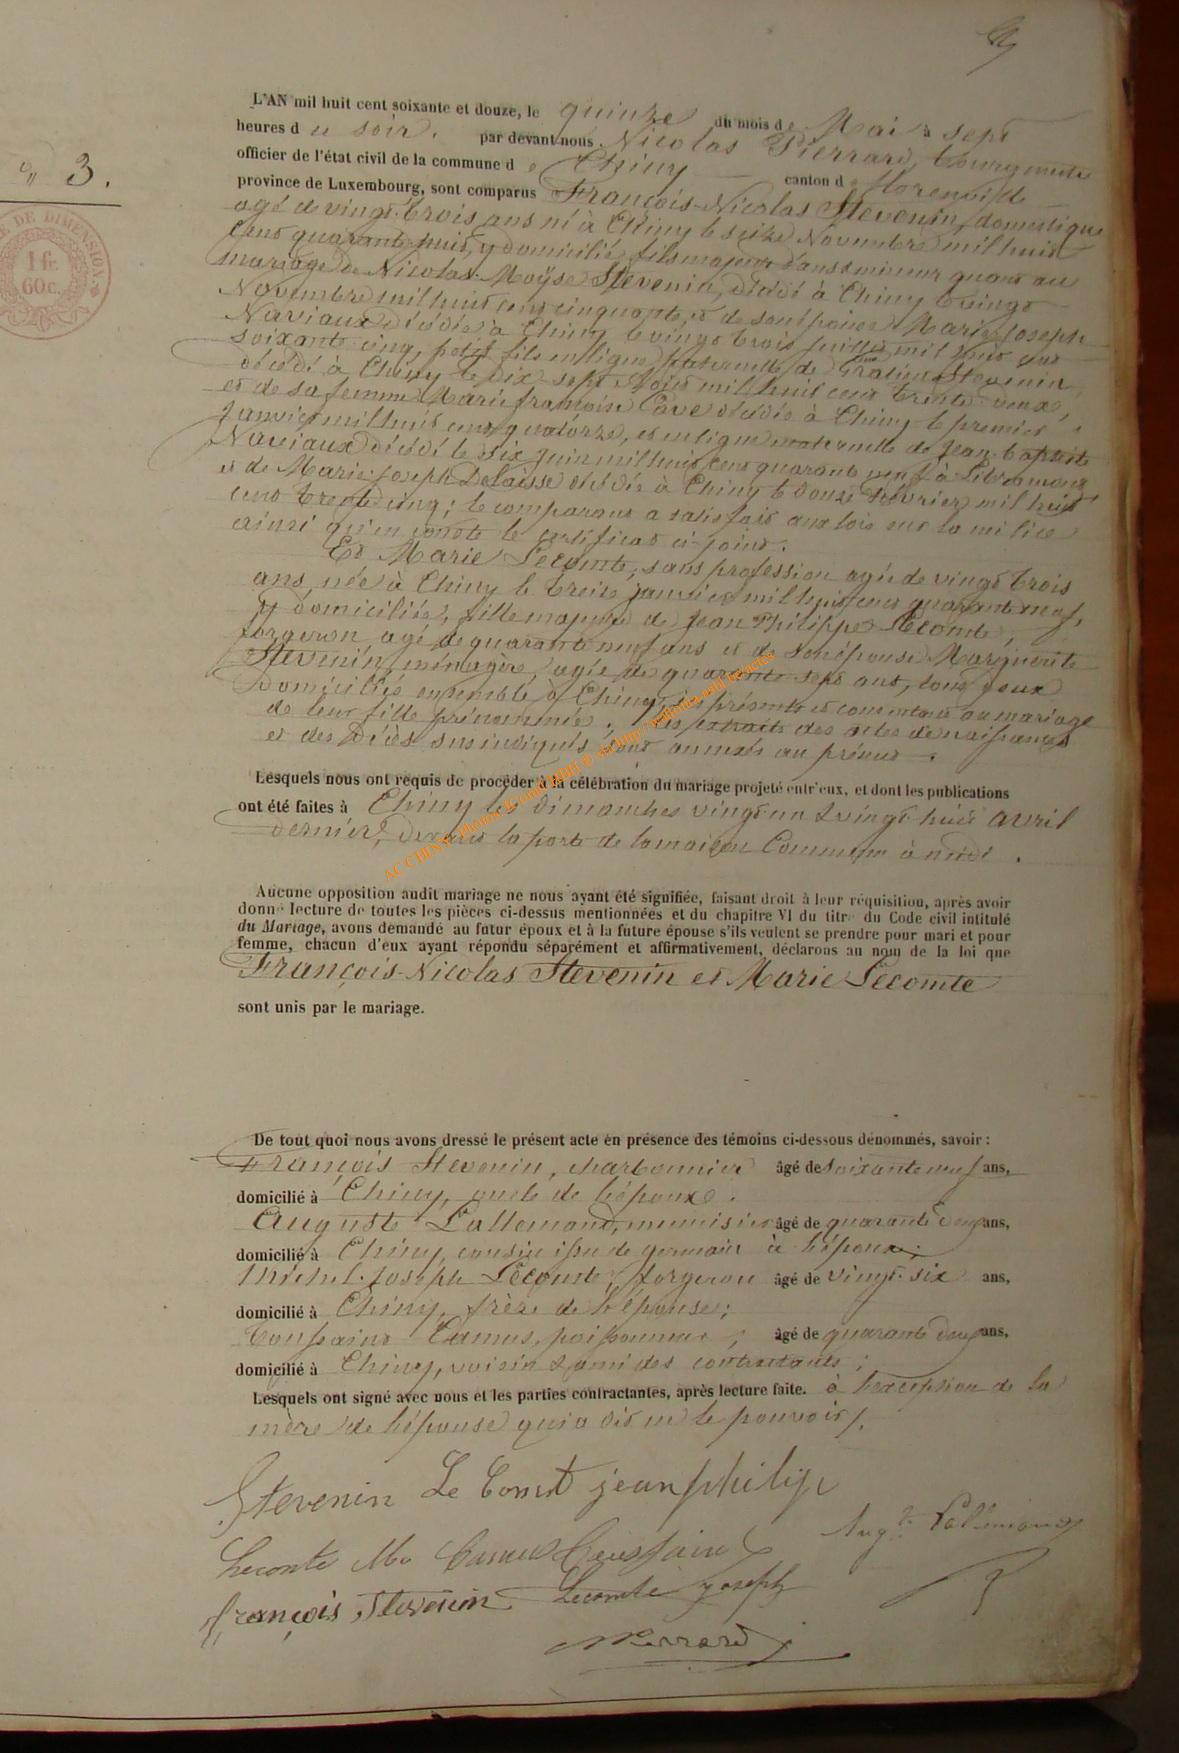 N° 3.
DE DIMENSION
1 fr.
60c.
L'AN mil huit cent soixante et douze, le quinze du mois de Mai à sept
heures du soir. par devant nous Nicolas Pierrard, bourgmestre
officier de l'état civil de la commune de Chiny canton de Florenville
province de Luxembourg, sont comparus François-Nicolas Stevenin, domestique
agé de vingt-trois ans né à Chiny le seize Novembre mil huit
cent quarante huit, y domicilié, fils majeur d'ans & mineur quant au
mariage de Nicolas-Moÿse Stevenin, décédé à Chiny le vingt
Novembre mil huit cent cinquante et de son épouse Marie Joseph
Naviaux décédée à Chiny le vingt trois juillet mil huit cent
soixante cinq, petit fils en ligne paternelle de Gratien Stevenin
décédé à Chiny le dix-sept Août mil huit cent trente deux,
et de sa femme Marie françoise Cave décédée à Chiny le premier
Janvier mil huit cent quatorze, et en ligne maternelle de Jean-baptiste
Naviaux décédé le six juin mil huit cent quarante neuf à Libramont
et de Marie-Joseph Delaisse décédée à Chiny le douze Février mil huit
cent trente cinq; le comparant a satisfait aux lois sur la milice
ainsi qu'en conste le certificat ci-joint.
Et Marie Lecomte, sans profession agée de vingt trois
ans, née à Chiny le treize janvier mil huit cent quarante neuf,
y domiciliée, fille majeure de Jean Philippe Lecomte,
forgeron agé de quarante neuf ans et de son épouse Marguerite
Stevenin, ménagère, agée de quarante sept ans, tous deux
domiciliés ensemble à Chiny, ici présents et consentans au mariage
de leur fille prénommée. Les extraits des actes de naissances
et des décès susindiqués sont annexés au présent.
AC CHINY Photos © http://wallonia.asbl.be/actes
Lesquels nous ont requis de procéder à la célébration du mariage projeté entr'eux, et dont les publications
ont été faites à Chiny les dimanches vingt un & vingt huit avril
dernier, devant la porte de la maison Commune à midi.
Aucune opposition audit mariage ne nous ayant été signifiée, faisant droit à leur réquisition, après avoir
donné lecture de toutes les pièces ci-dessus mentionnées et du chapitre VI du titre du Code civil intitulé
du Mariage, avons demandé au futur époux et à la future épouse s'ils veulent se prendre pour mari et pour
femme, chacun d'eux ayant répondu séparément et affirmativement, déclarons au nom de la loi que
François-Nicolas Stevenin et Marie Lecomte
sont unis par le mariage.
De tout quoi nous avons dressé le présent acte en présence des témoins ci-dessous dénommés, savoir :
François Stevenin, charbonnier âgé de soixante neuf ans,
domicilié à Chiny, oncle de l'époux.
Auguste Lallemand, menuisier âgé de quarante deux ans,
domicilié à Chiny, cousin issu de germain à l'époux;
Michel-Joseph Lecomte, forgeron âgé de vingt-six ans,
domicilié à Chiny, frère de l'épouse;
Toussaint Camus, poissonnier, âgé de quarante deux ans,
domicilié à Chiny, voisin & ami des contractants;
Lesquels ont signé avec nous et les parties contractantes, après lecture faite. à l'exception de la
mère de l'épouse qui a dit ne le pouvoir.
Stevenin Le Comte jean philipe
Lecomte Ma Camus Toussaint Augte Lallemand
françois Stevenin Lecomte joseph
NPierrard